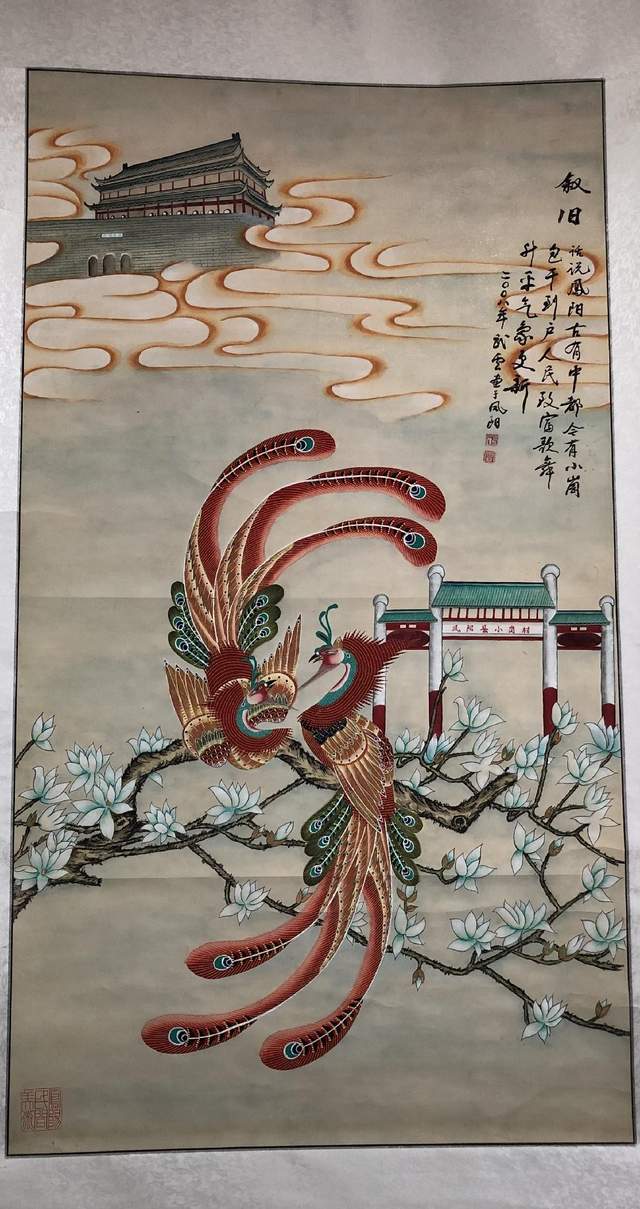 叙旧
话说凤阳古有中都今有小岗
包干到户人民致富歌舞
升平气象更新
二〇〇八年武云画于凤阳
凤阳县小岗村